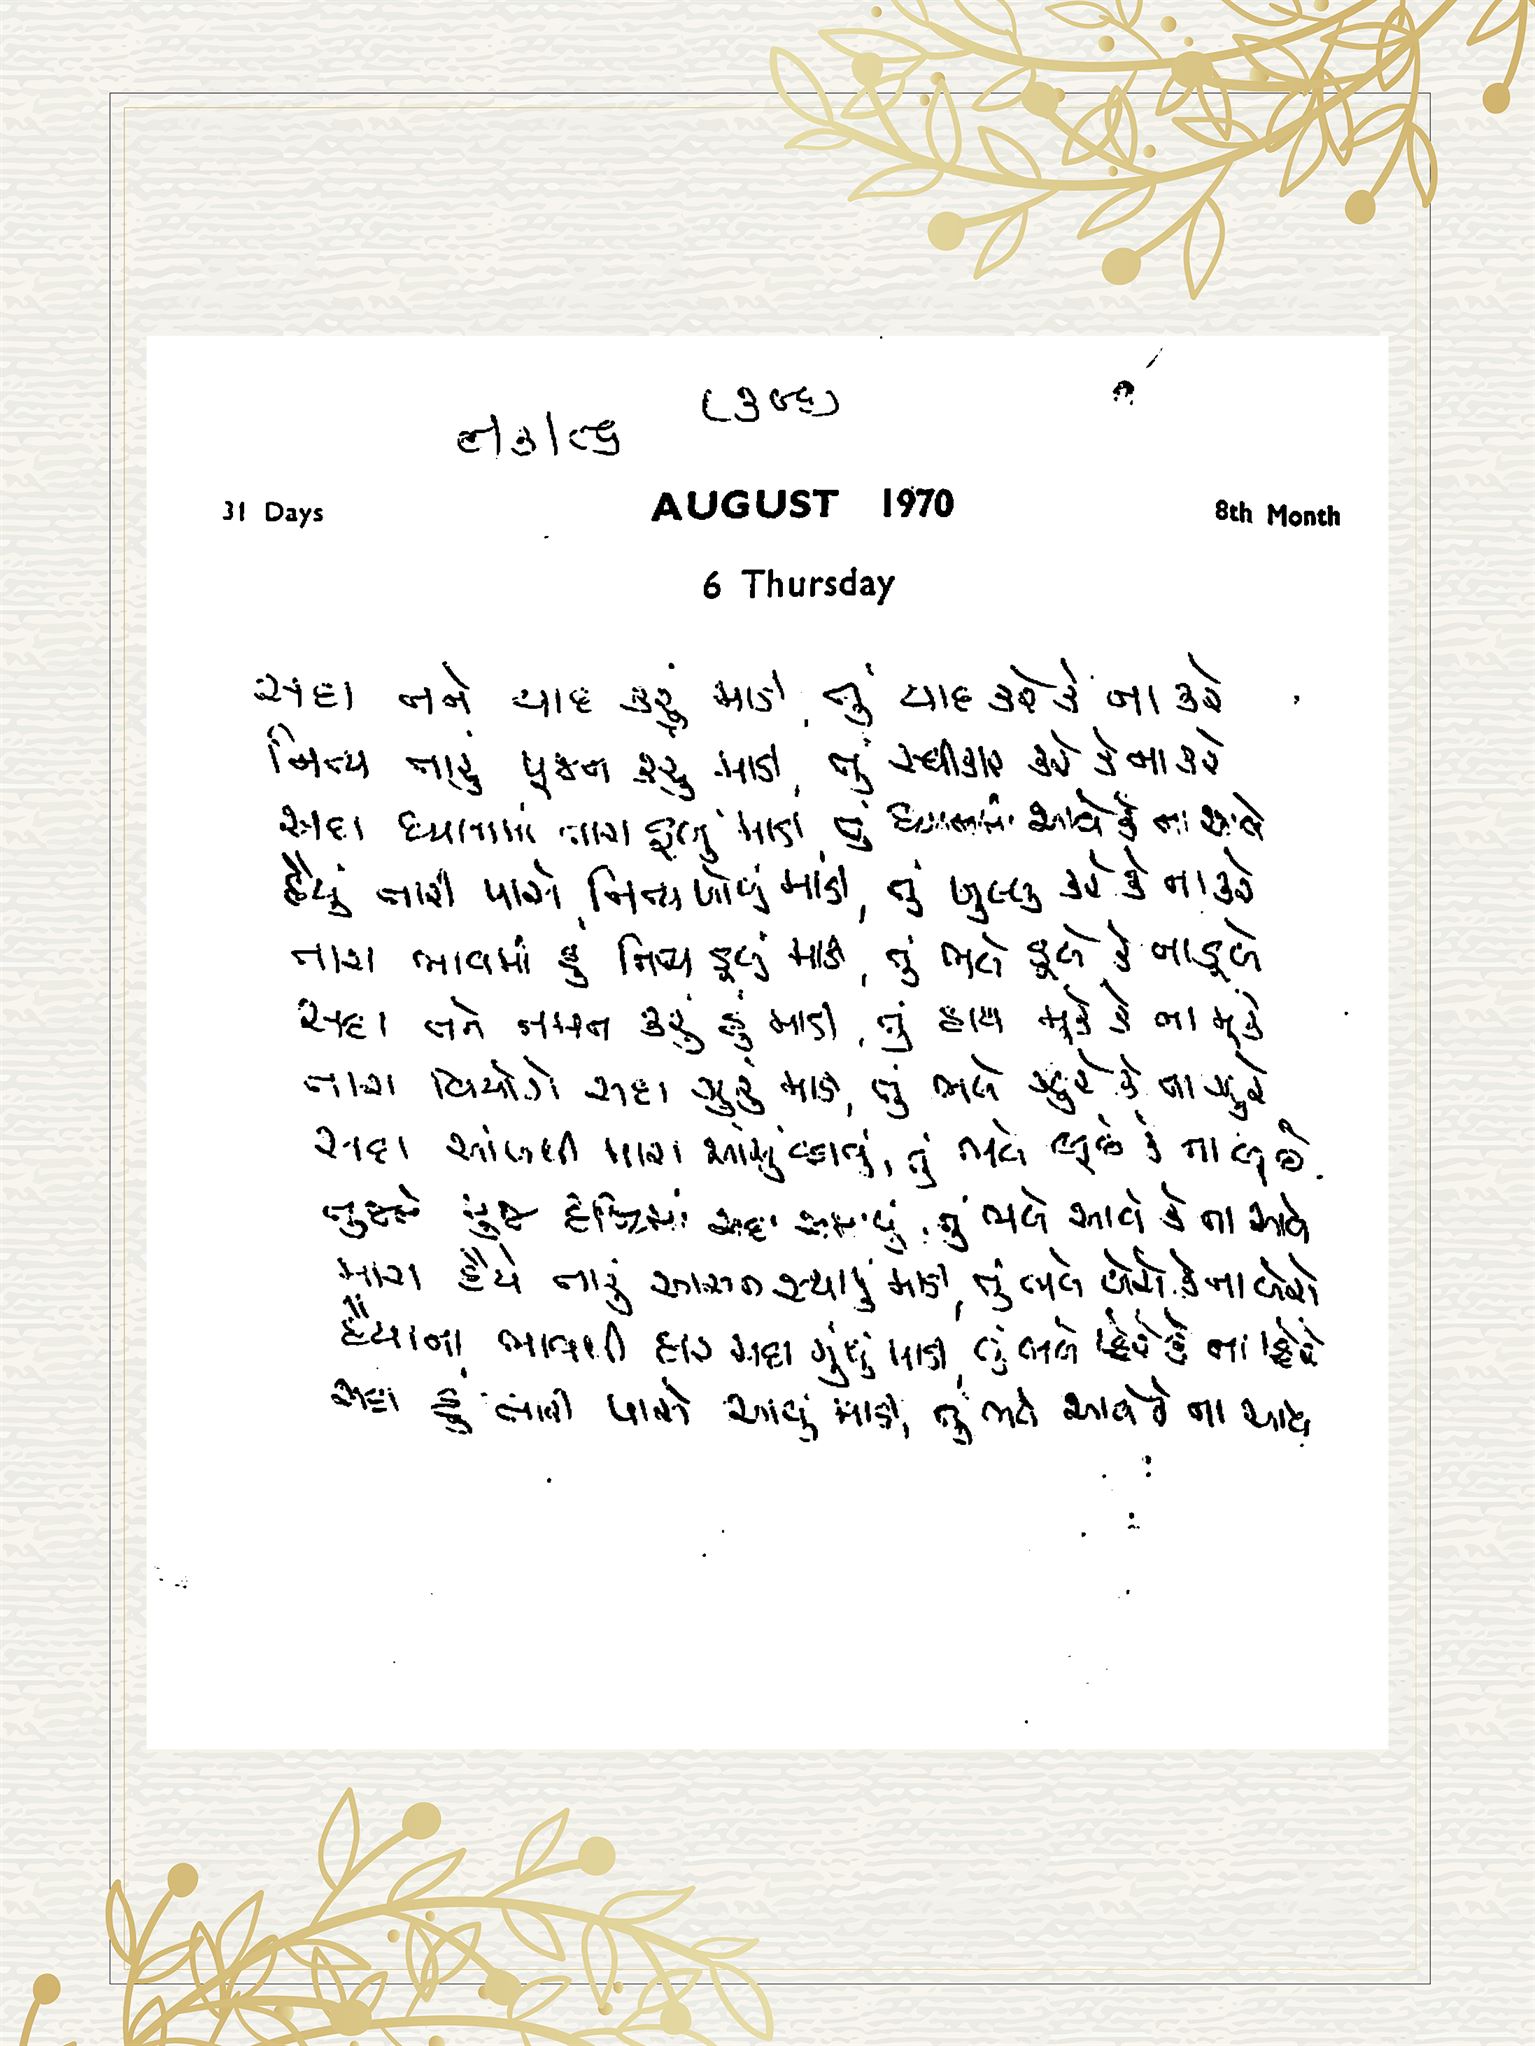 31 Days
AUGUST 1970
8th Month
6 Thursday
સદા તને યાદ કરું માડી, તું યાદ કરે કે ના કરે
નિત્ય તારું પૂજન કરું માડી, તું સ્વીકાર કરે કે ના કરે
સદા ધ્યાનમાં તારા ડૂબું માડી, તું ધ્યાનમાં આવે કે ના આવે
હૈયું તારી પાસે નિત્ય ખોલું માડી, તું ખુલ્લુ કરે કે ના કરે
તારા ભાવમાં હું નિત્ય ડૂબું માડી, તું ભલે ડૂબે કે ના ડૂબે
સદા તને નમન કરું હું માડી, તું હાથ મૂકે કે ના મૂકે
તારા વિયોગે સદા ઝુરું માડી, તું ભલે ઝુરે કે ના ઝુરે
સદા આંખથી મારા આંસું વ્હાવું, તું ભલે લૂછે કે ના લૂછે.
તુજને મુજ દૃષ્ટિમાં સદા સમાવું, તું ભલે આવે કે ના આવે
મારા હૈયે તારું આસન સ્થાપું માડી, તું ભલે બેસે કે ના બેસે
હૈયાના ભાવથી હાર સદા ગુંથું માડી, તું ભલે પ્હેરે કે ના પ્હેરે
સદા હું તારી પાસે આવું માડી, તું ભલે આવે કે ના આવે